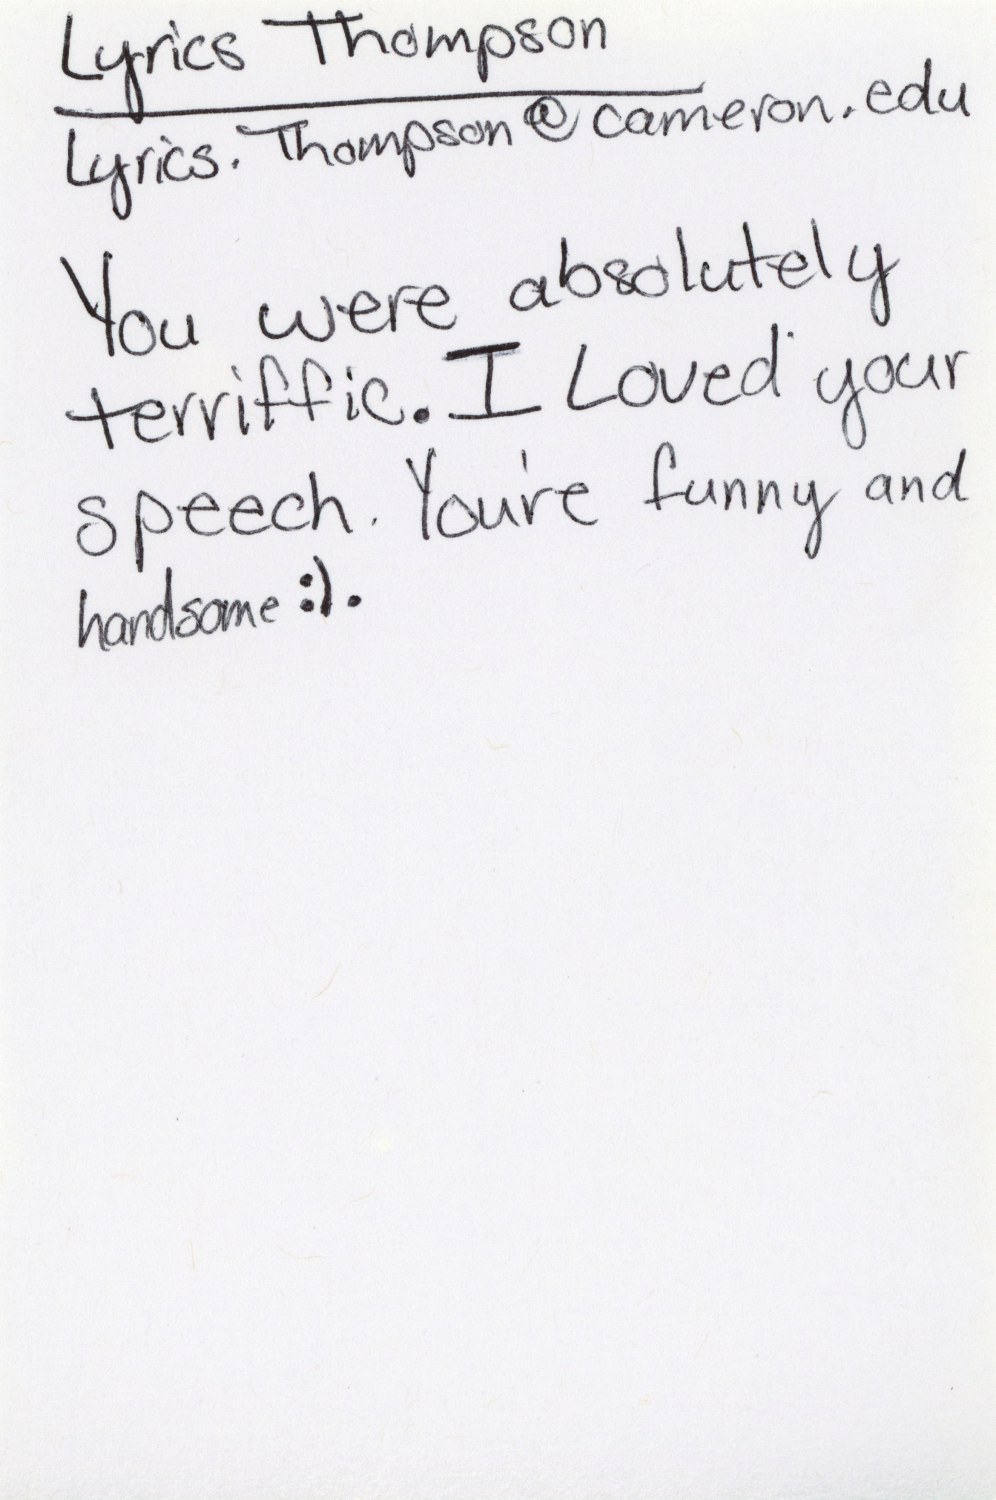 Lyrics Thompson
Lyrics.Thompson@cameron.edu
You were absolutely
terriffic. I Loved your
speech. You're funny and
handsome :).